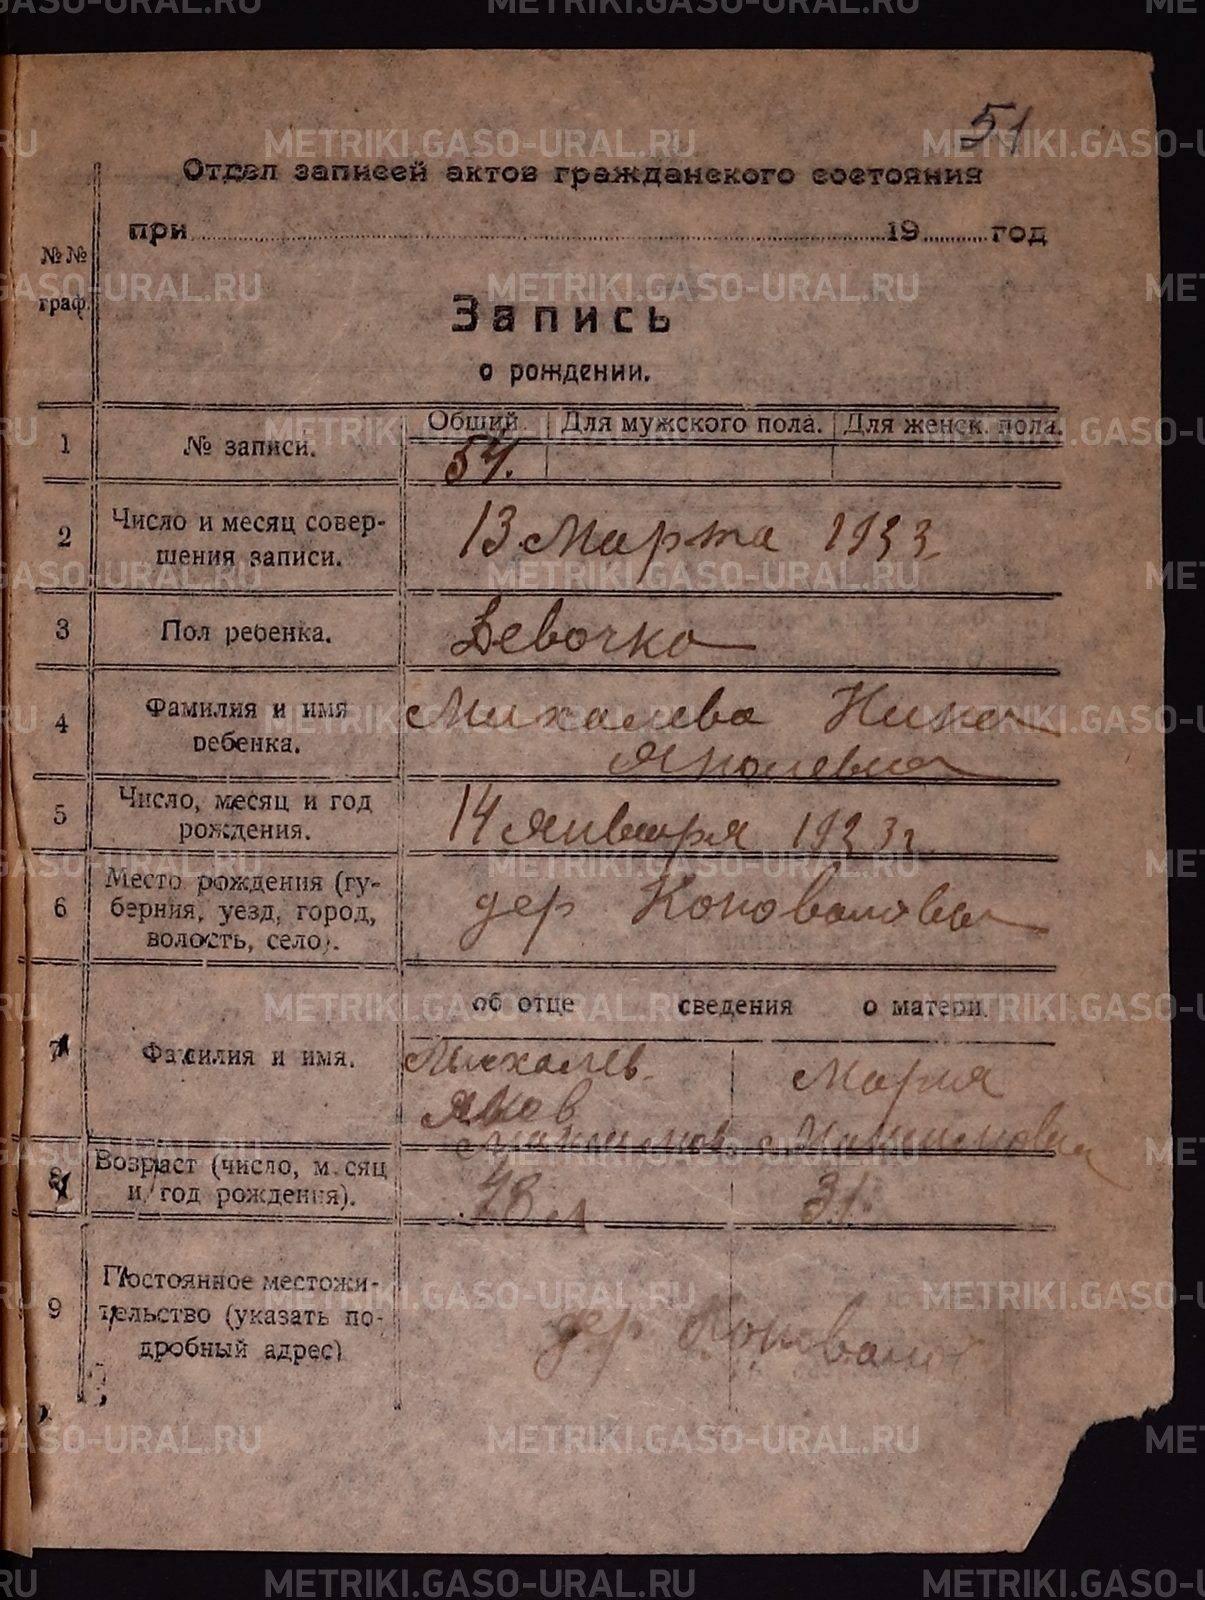 51
Отдел записей актов гражданского состояния
при 19 год
№№
граф.
Запись
о рождении.
Общий. Для мужского пола. Для женск. пола.
1 № записи. 54.
2 Число и месяц совер-
шения записи. 13 Марта 1923
3 Пол ребенка. Девочка
4 Фамилия и имя
ребенка. Михалева Нина
Яковлевна
5 Число, месяц и год
рождения. 14 января 1923 г.
6 Место рождения (гу-
берния, уезд, город,
волость, село). дер Коноваловы
об отце сведения о матери.
7 Фамилия и имя. Михалев Мария
Яков
8 Возраст (число, м.сяц
и год рождения). 31.
9 Постоянное местожи-
тельство (указать по-
дробный адрес) дер
METRIKI.GASO-URAL.RU